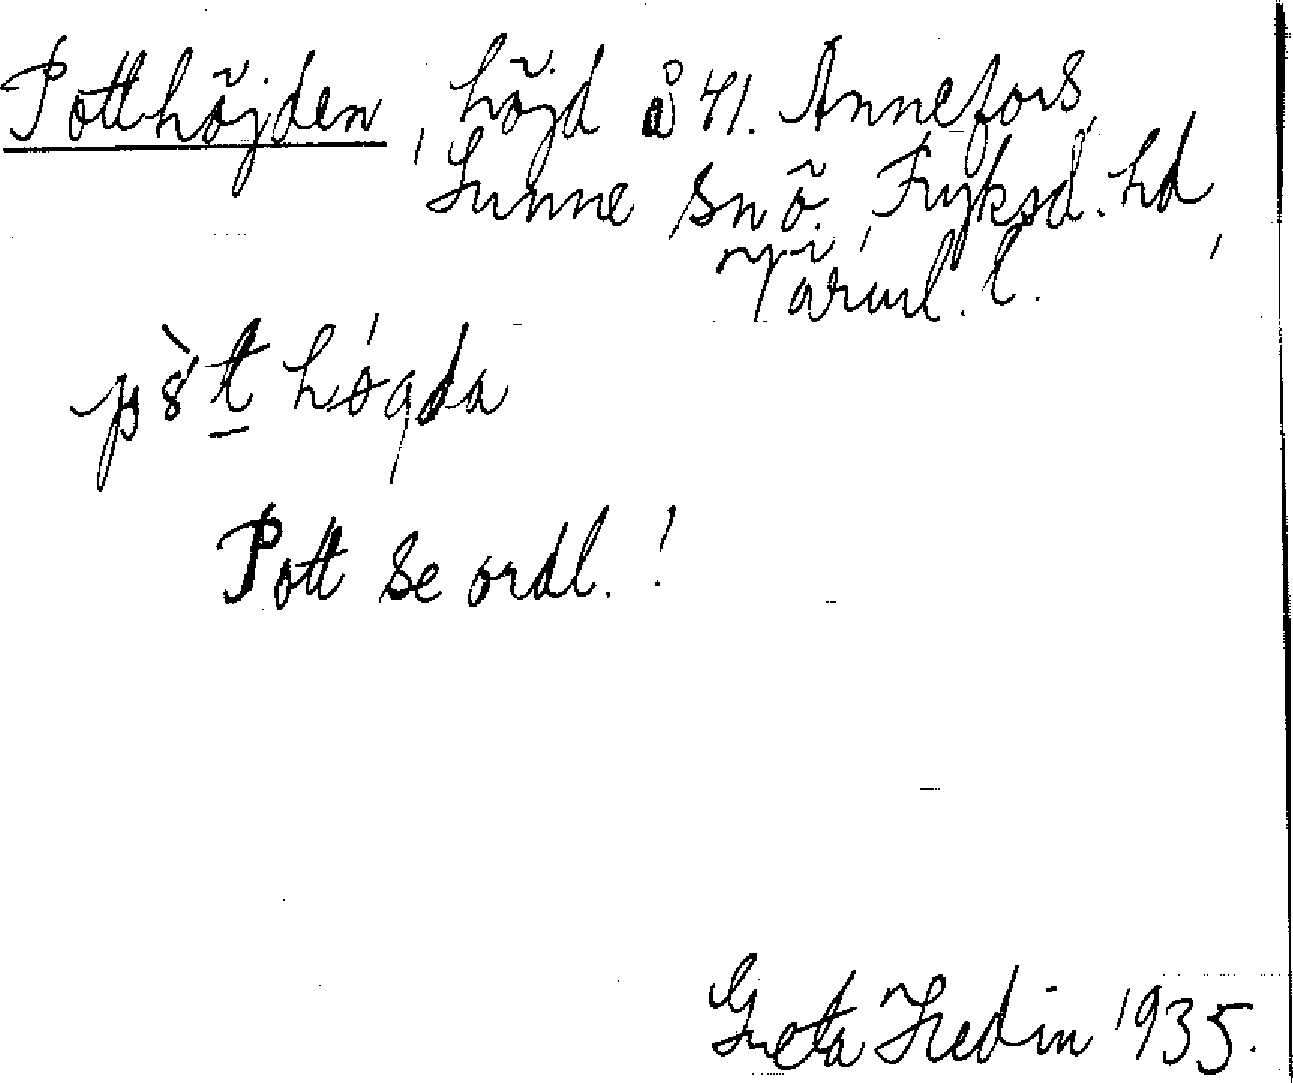 Potthöjden, höjd å 41. Annefors,
Sunne sn ö. Fryksd. hd,
Värml. l.
pò̀t høgda
Pott se ordl.!
Greta Hedin 1935.